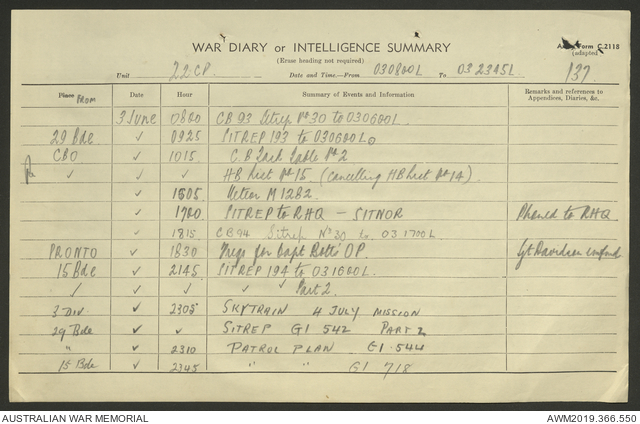 WAR DIARY or INTELLIGENCE SUMMARY
Form C.2118
(adapted)
(Erase heading not required)
Unit 22 CP. Date and Time—From 030800L To 032345L 137
Place FROM Date Hour Summary of Events and Information Remarks and references to Appendices, Diaries, &c.
3 June 0800 CB 93 Sitrep No 30 to 030600L
29 Bde ✓ 0925 SITREP 193 to 030600L
CBO ✓ 1015 C.B Task Table No 2
✓ ✓ HB List No 15 (Cancelling HB List No 14).
✓ 1605 Meteor M1282
✓ 1700 SITREP to RHQ — SITNOR Phoned to RHQ
✓ 1815 CB94 Sitrep No 30 to 031700L
PRONTO ✓ 1830 Freqs for Capt Botts' OP. Sgt Davidson
15 Bde ✓ 2145 SITREP 194 to 031600L
✓ ✓ ✓ ✓ Part 2
3 DIV ✓ 2305 SKYTRAIN 4 JULY MISSION
29 Bde ✓ ✓ SITREP GI 542 PART 2
" ✓ 2310 PATROL PLAN GI 544
15 Bde ✓ 2345 " " GI 718
AUSTRALIAN WAR MEMORIAL AWM2019.366.550